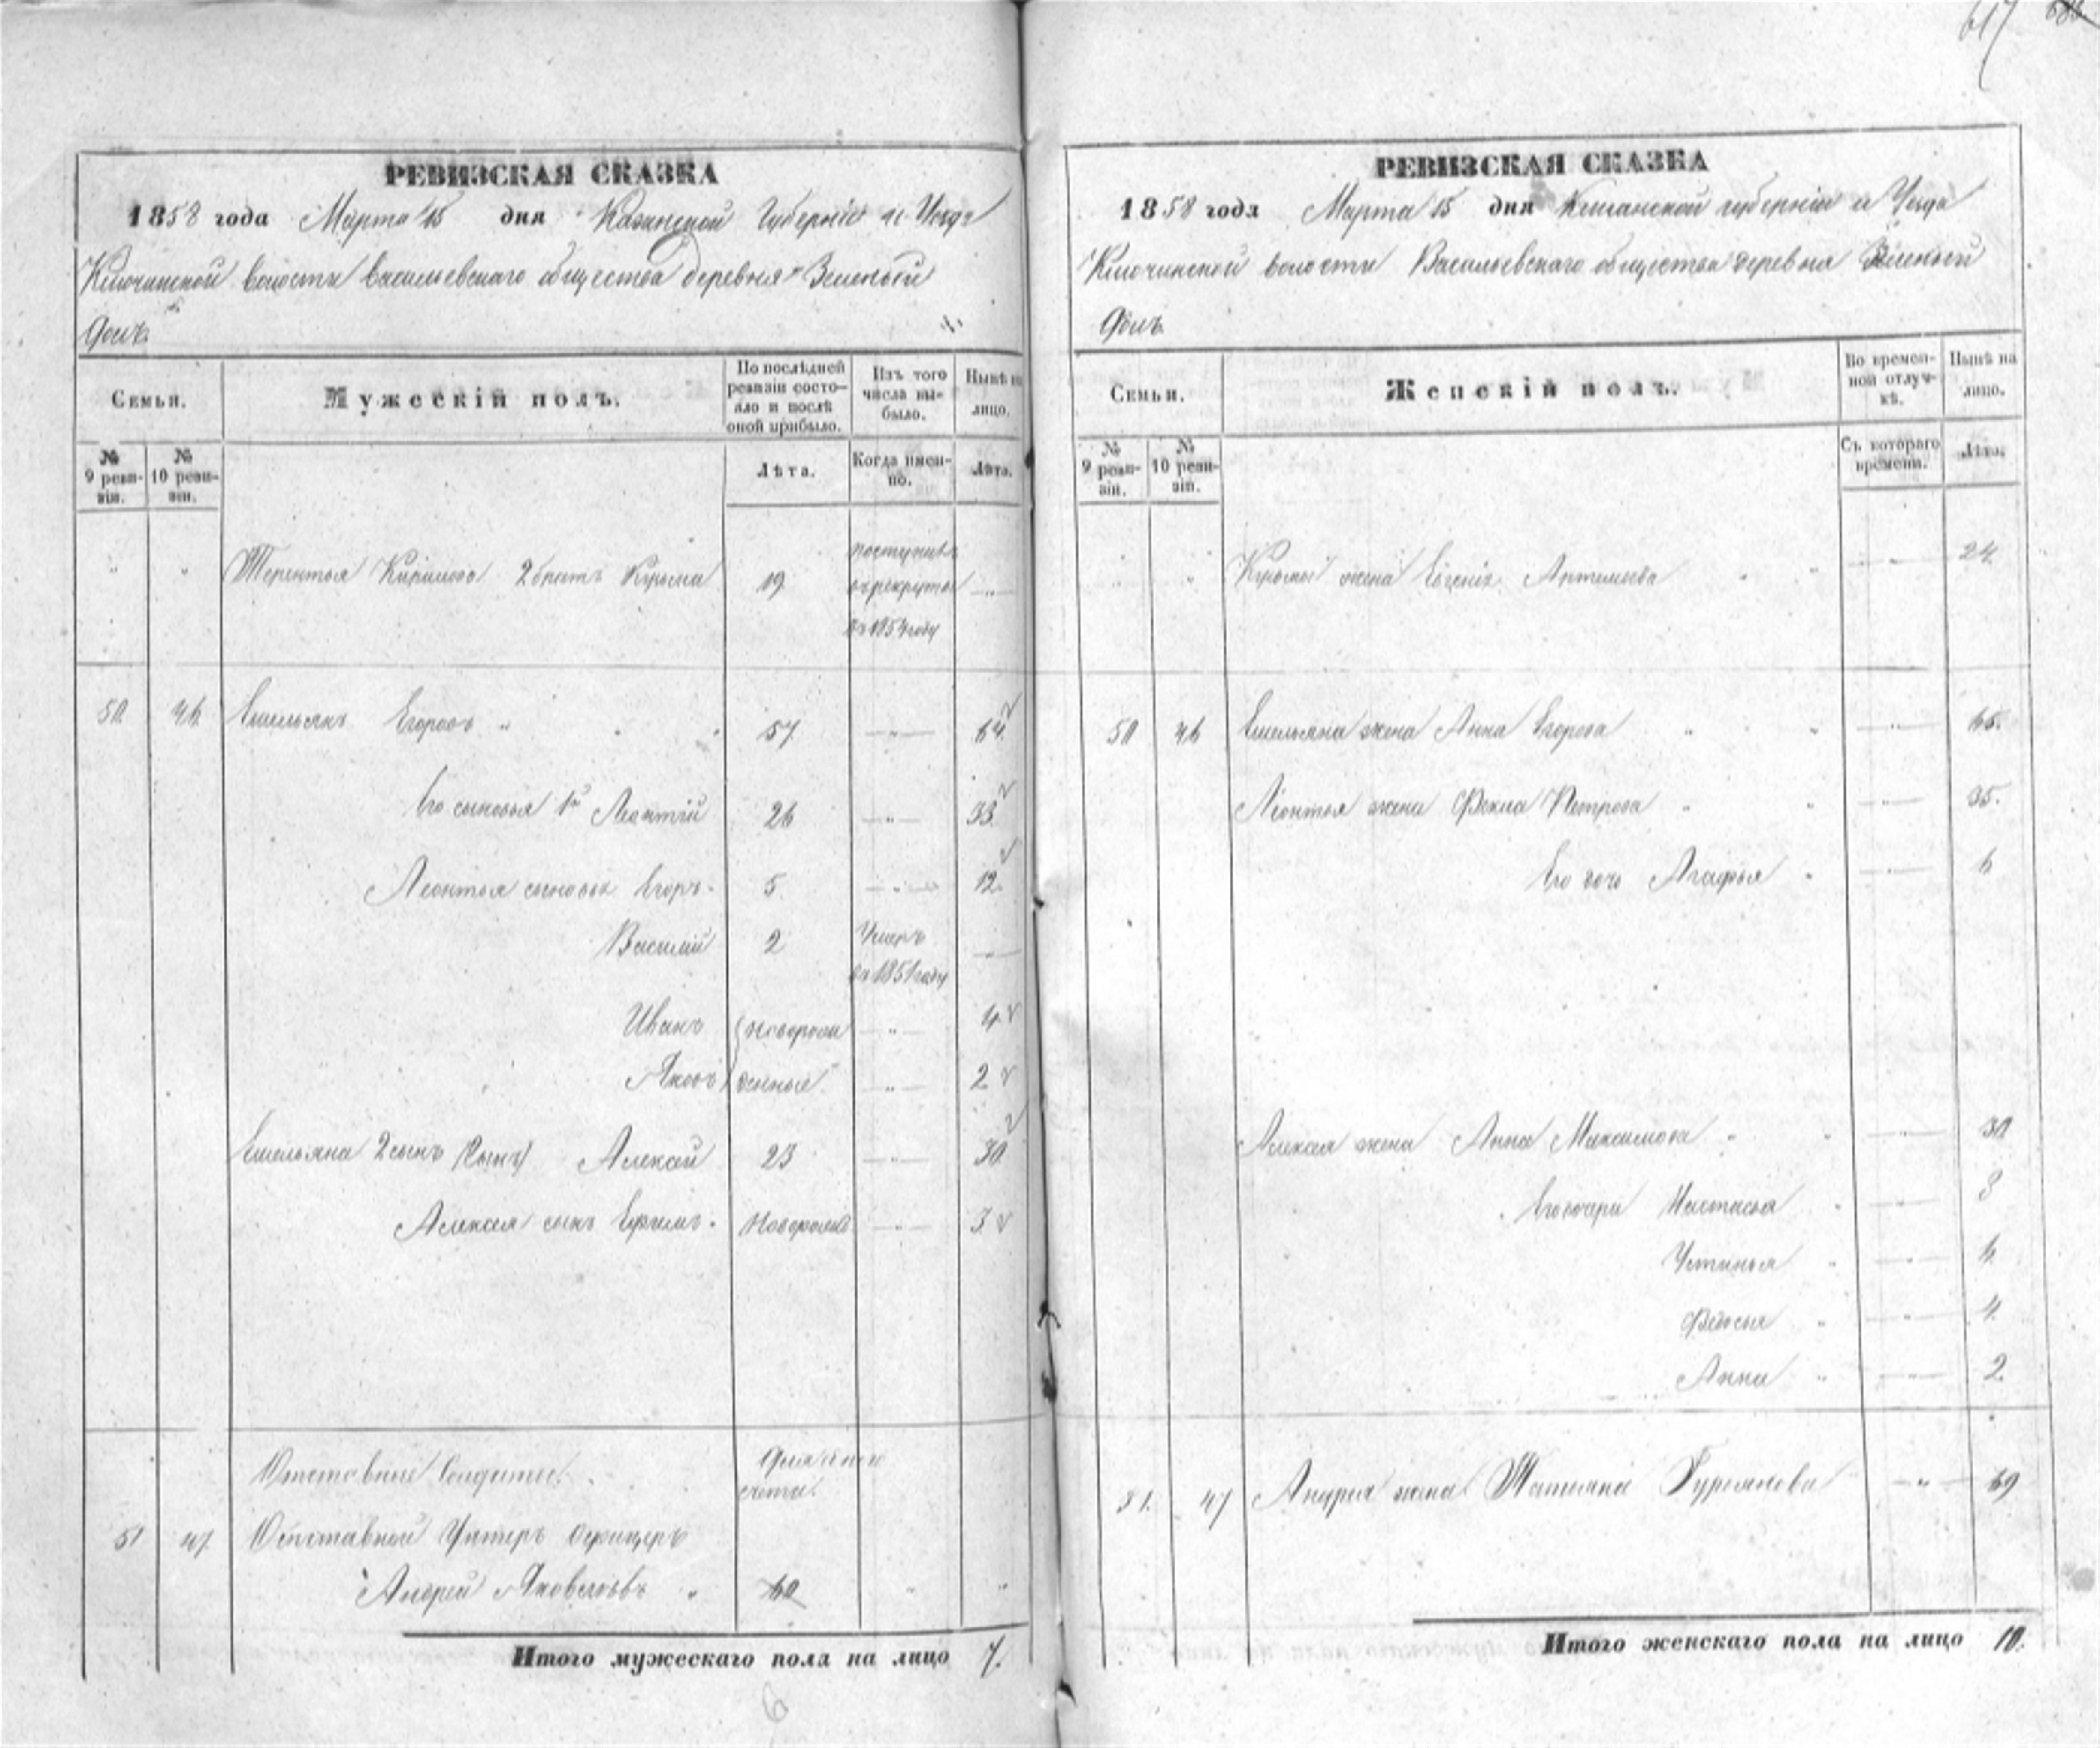 617
РЕВИЗСКАЯ СКАЗКА
1858 года Марта 15 дня Казанской Губерніи и Уезда
Ключинской волости Васильевскаго общества деревня Зеленый
Долъ.
Семьи.
Мужескій полъ.
По послѣдней ревизіи состояло и послѣ оной прибыло.
Изъ того числа выбыло.
Нынѣ на лицо.
№ 9 ревизіи.
№ 10 ревизіи.
Лѣта.
Когда именно.
Лѣта.
" " Терентья Кирилова 2 братъ Кузьма 19 поступилъ въ рекруты въ 1854 году — " —
50. 46. Емельянъ Егоровъ " 57 — " — 64.
Его сыновья 1й Леонтій 26 — " — 33.
Леонтья сыновья Егоръ. 5 — " — 12.
Василій 2 Умеръ въ 1851 году — " —
Иванъ новорож — " — 4
Яковъ денные — " — 2
Емельяна 2 сынъ Алексей 23 — " — 30
Алексея сынъ Ефимъ. Новорож — " — 3
Отставные Солдаты. Для одного счета.
51 47. Отставной Унтеръ Офицеръ
Андрей Яковлевъ " 60 " "
Итого мужескаго пола на лицо 7.
6
РЕВИЗСКАЯ СКАЗКА
1858 года Марта 15 дня Казанской губерніи и Уезда
Ключинской волости Васильевскаго общества деревня Зеленый
Долъ.
Семьи.
Женскій полъ.
Во временной отлучкѣ.
Нынѣ на лицо.
№ 9 ревизіи.
№ 10 ревизіи.
Съ котораго времени.
Лѣта.
" " Кузьмы жена Евгенія Артемьева " " — " — 24.
50 46 Емельяна жена Анна Егорова " " — " — 65.
Леонтья жена Фекла Петрова " " — " — 35.
Его дочь Агафья " — " — 6
Алексея жена Анна Максимова " " — " — 30
Его дочери Настасья " — " — 8
Устинья " — " — 6.
Федосья " — " — 4.
Анна " — " — 2.
51. 47 Андрея жена Татьяна Гурьянова — " — 69
Итого женскаго пола на лицо 10.